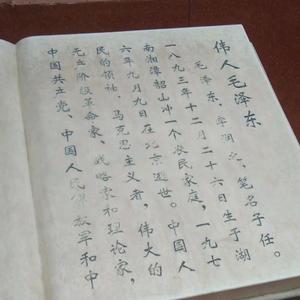 伟人毛泽东
毛泽东，字润之，笔名子任。
一八九三年十二月二十六日生于湖
南湘潭韶山冲一个农民家庭，一九七
六年九月九日在北京逝世。中国人
民的领袖，马克思主义者，伟大的
无产阶级革命家、战略家和理论家，
中国共产党、中国人民解放军和中